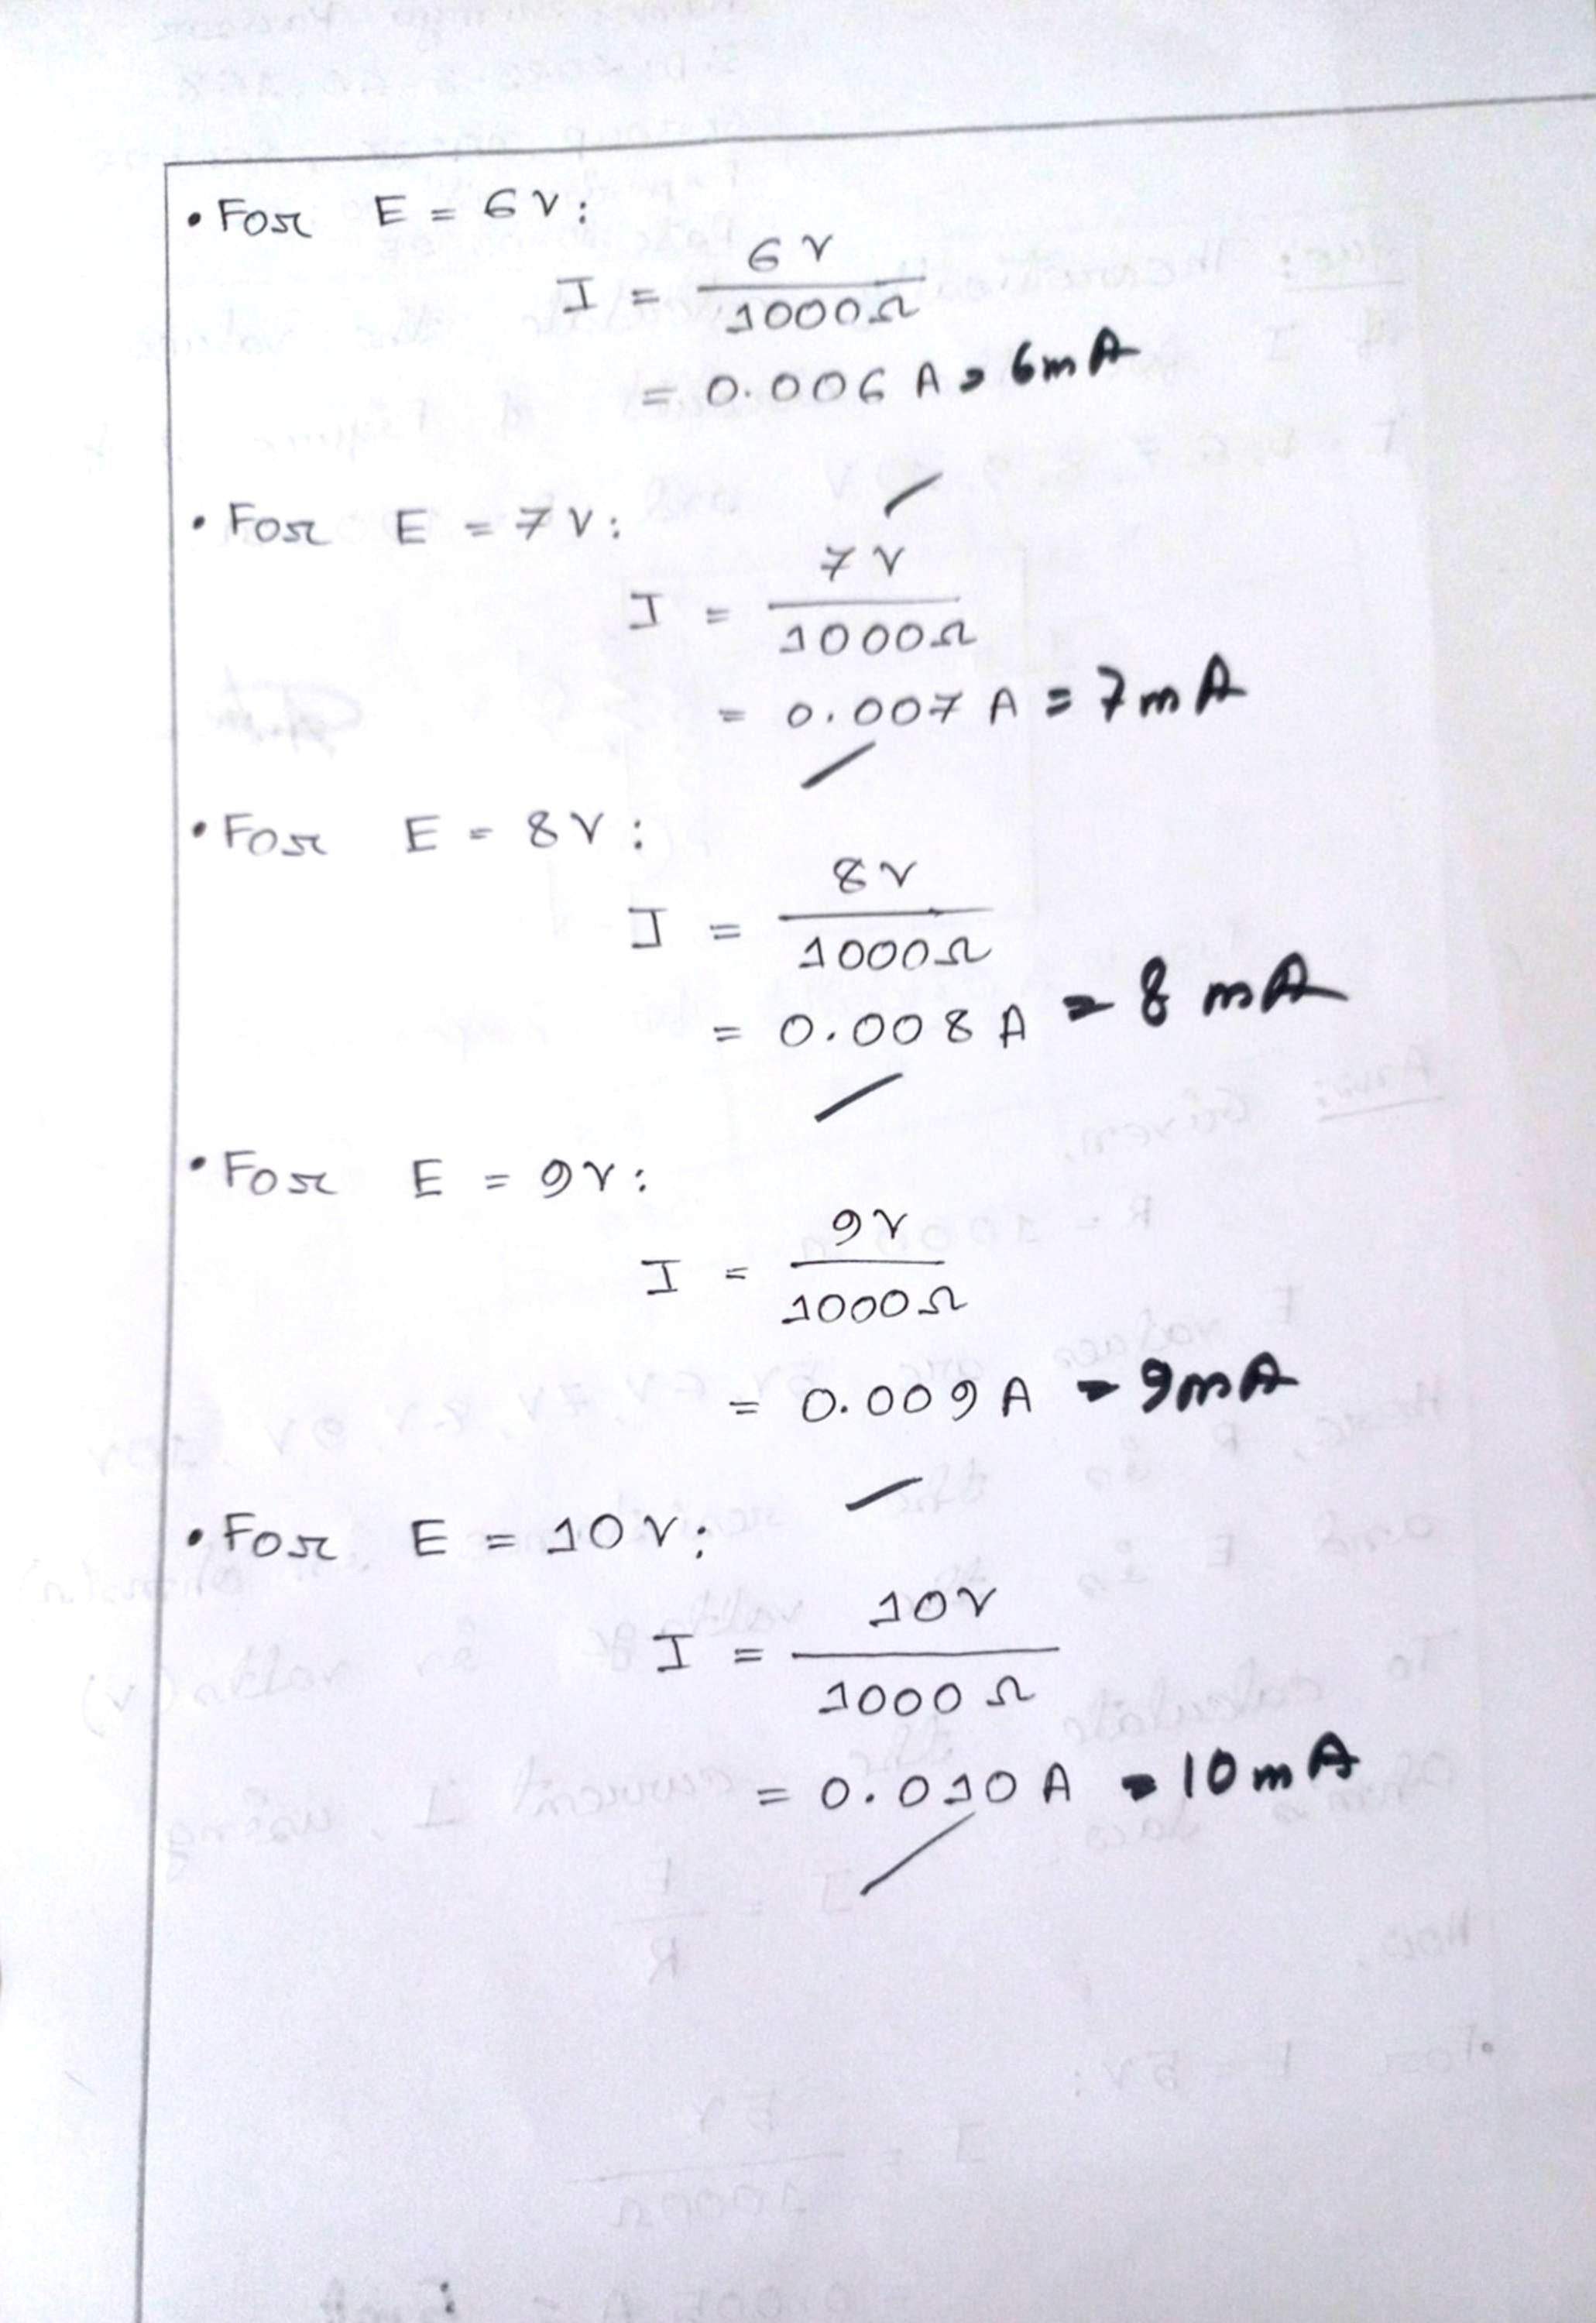 • For E = 6V:
I = 6V / 1000Ω
= 0.006 A = 6mA
• For E = 7V:
I = 7V / 1000Ω
= 0.007 A = 7mA
• For E = 8V:
I = 8V / 1000Ω
= 0.008 A = 8 mA
• For E = 9V:
I = 9V / 1000Ω
= 0.009 A = 9mA
• For E = 10V:
I = 10V / 1000Ω
= 0.010 A = 10mA